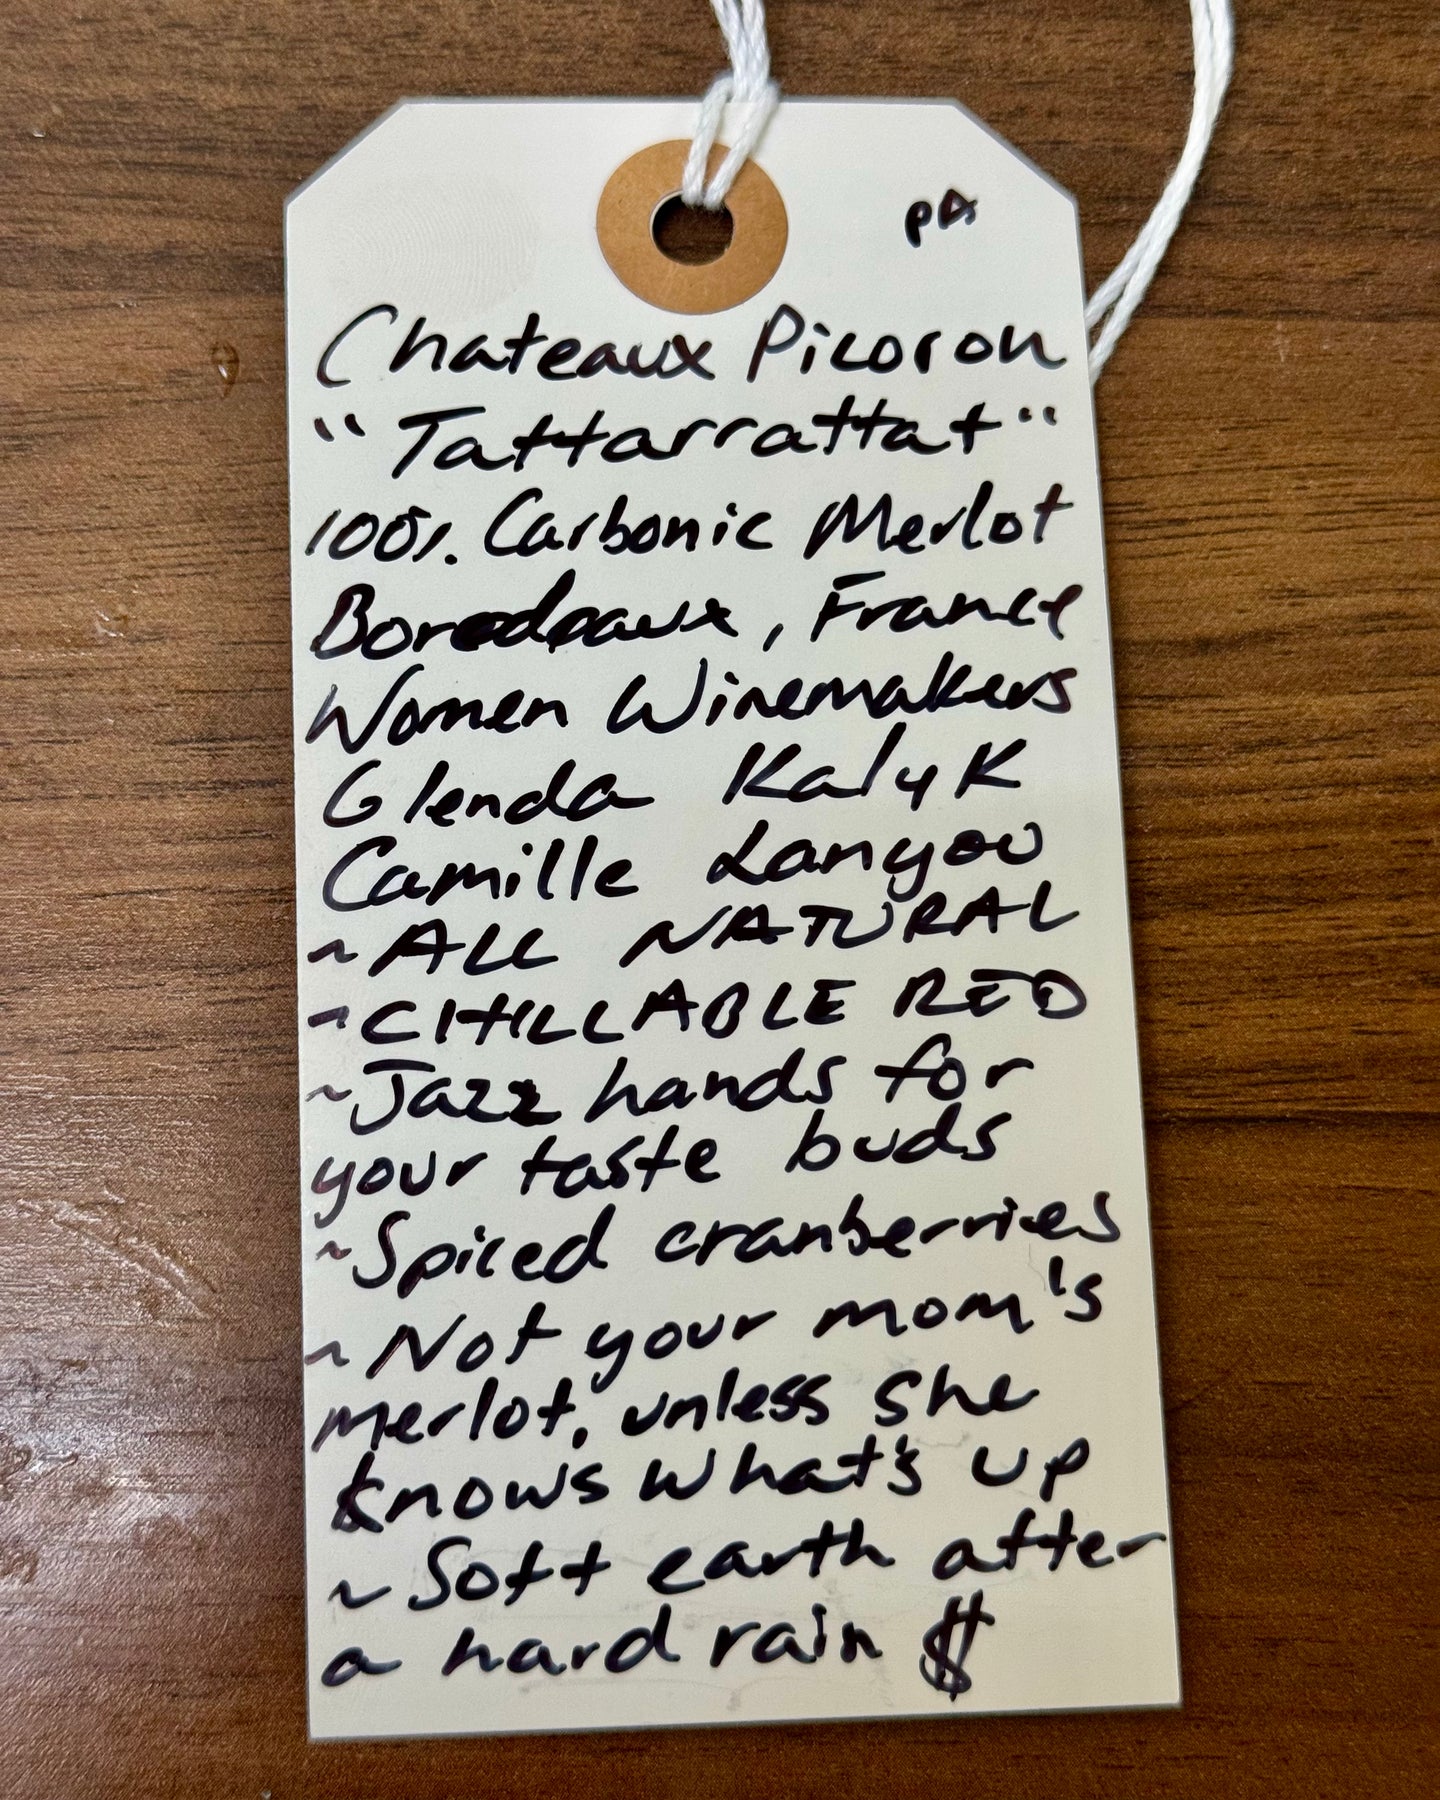 PA
Chateaux Picoron
"Tattarrattat"
100%. Carbonic Merlot
Boredeaux, France
Women Winemakers
Glenda Kalyk
Camille Lanyou
~ALL NATURAL
~CHILLABLE RED
~Jazz hands for
your taste buds
~Spiced cranberries
~Not your mom's
merlot, unless she
knows what's up
~Soft earth after
a hard rain $